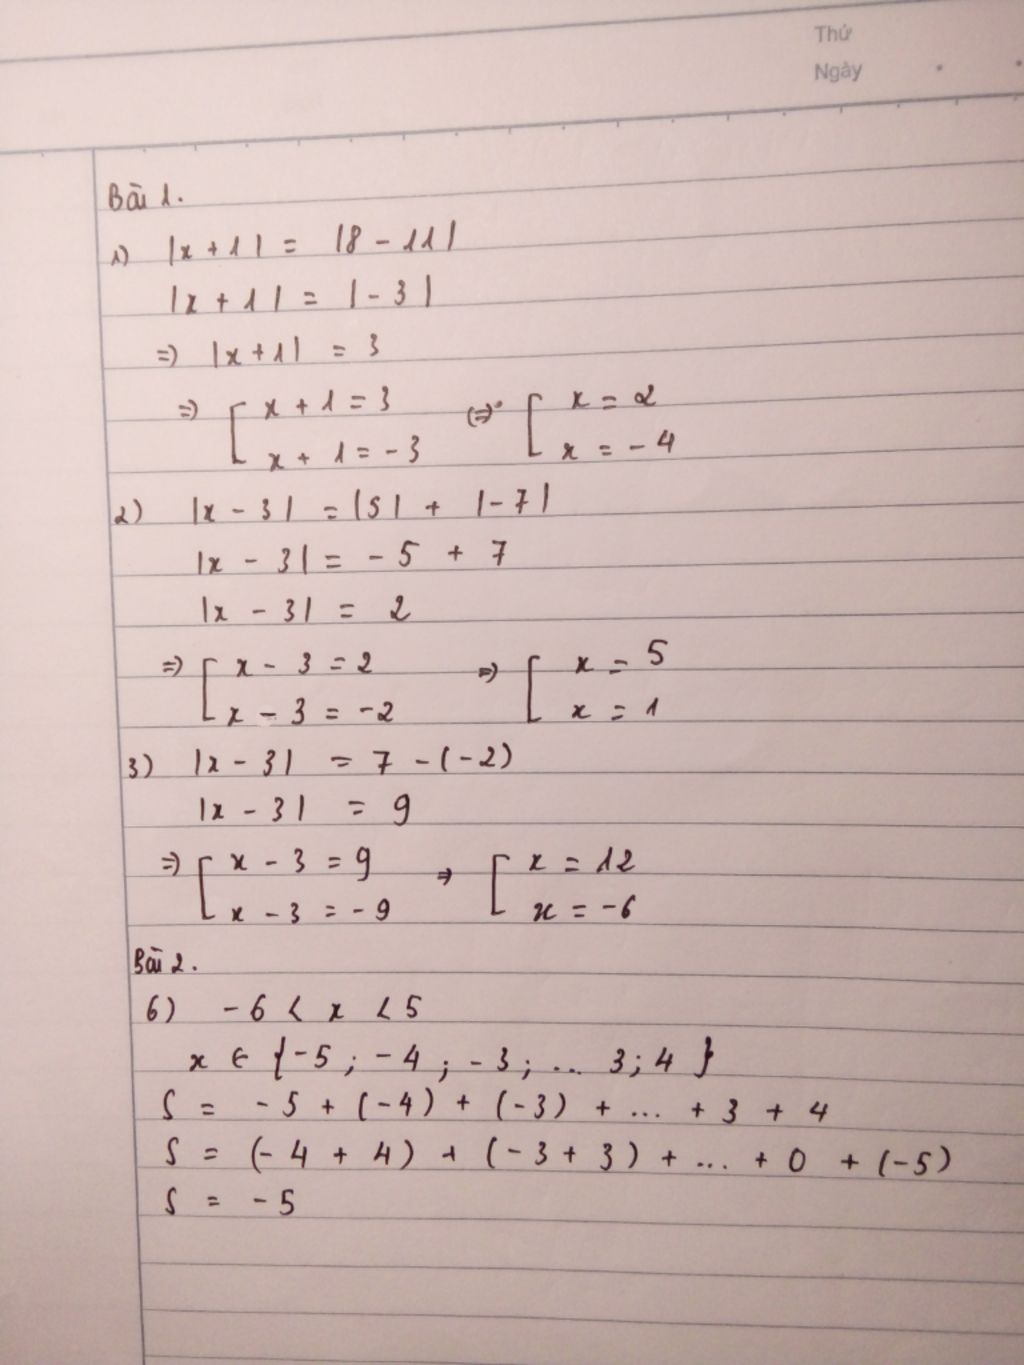 Thứ
Ngày
Bài 1.
1) |x + 1| = |8 - 11|
|x + 1| = |-3|
=> |x + 1| = 3
=> [ x + 1 = 3 <=> [ x = 2
x + 1 = -3 x = -4
2) |x - 3| = |5| + |-7|
|x - 3| = -5 + 7
|x - 3| = 2
=> [ x - 3 = 2 => [ x = 5
x - 3 = -2 x = 1
3) |x - 3| = 7 - (-2)
|x - 3| = 9
=> [ x - 3 = 9 => [ x = 12
x - 3 = -9 x = -6
Bài 2.
6) -6 < x < 5
x ∈ {-5; -4; -3; ... 3; 4}
S = -5 + (-4) + (-3) + ... + 3 + 4
S = (-4 + 4) + (-3 + 3) + ... + 0 + (-5)
S = -5